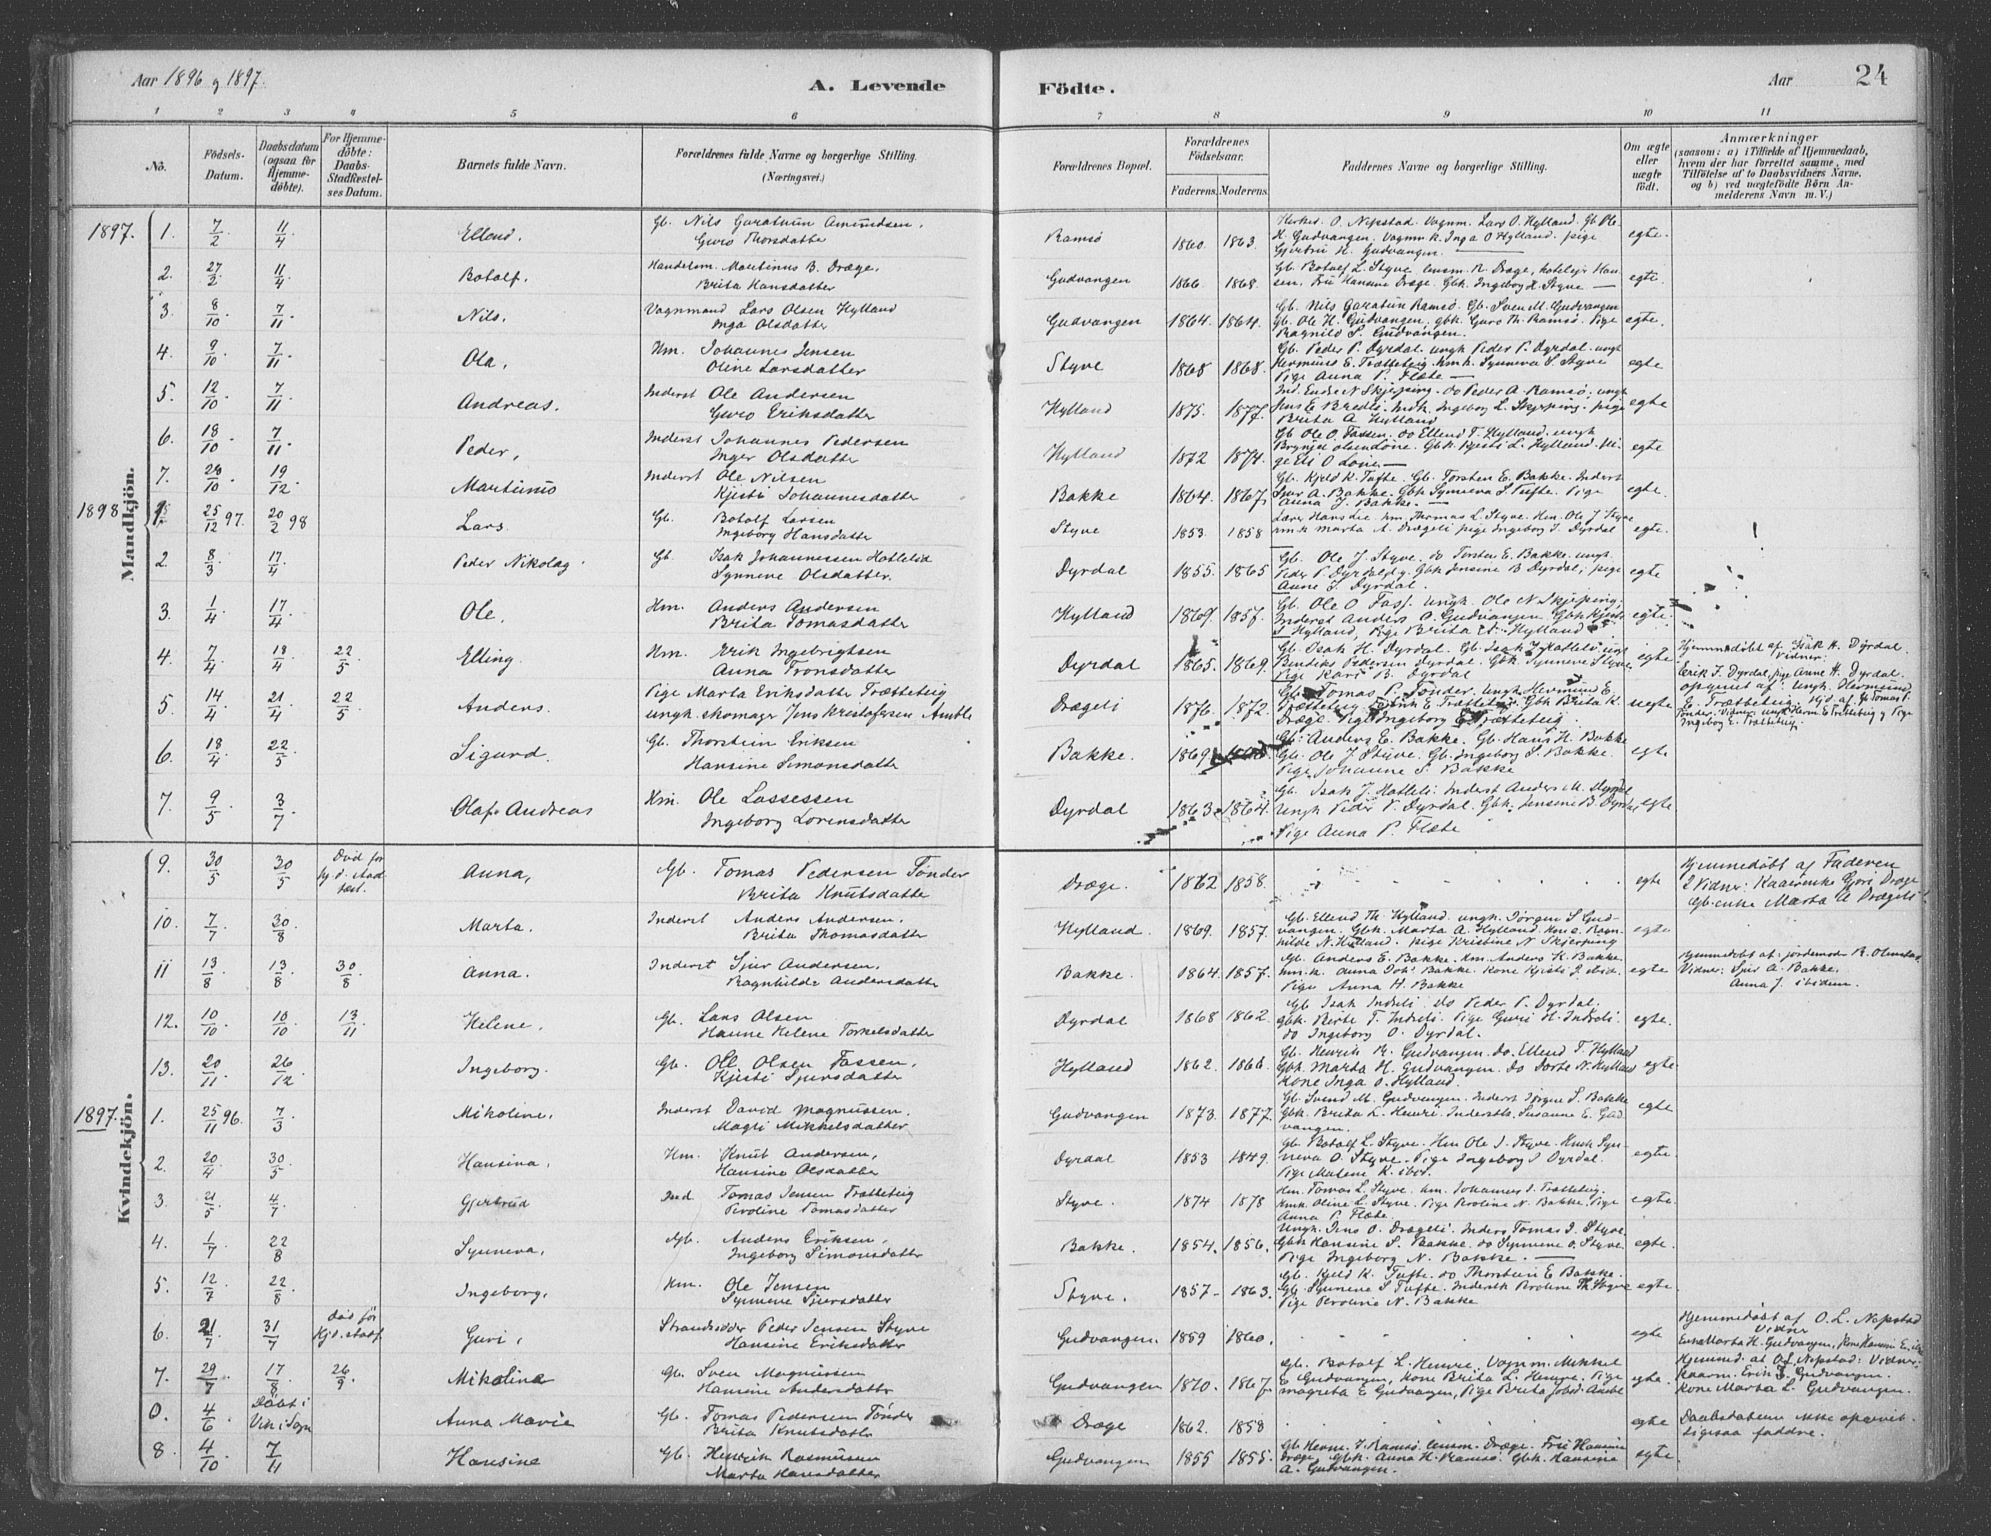 Aar 1896 g 1897.
A. Levende Födte.
Aar 24
1 2 3 4 5 6 7 8 9 10 11
No.
Födsels-Datum.
Daabsdatum (ogsaa för Hjemme-döbte).
For Hjemme-döbte: Daabs-Stadfæstel-ses Datum.
Barnets fulde Navn.
Forældrenes fulde Navne og borgerlige Stilling. (Næringsvei.)
Forældrenes Bopæl.
Forældrenes Födselsaar.
Faderens. Moderens.
Faddernes Navne og borgerlige Stilling.
Om ægte eller uægte födt.
Anmærkninger (saasom: a) i Tilfælde af Hjemmedaab, hvem der har forrettet samme, med Tilföielse af to Daabsvidners Navne. og b) ved uægtefödte Börn An-melderens Navn m. V.)
Mandkjön.
1897. 1. 7/2 11/4 Ellend. Gb. Nils Garatun Amundsen, Guro Thorsdatter Ramsö 1860. 1863. H. Gudvangen. Vognm k. Inga O Hylland. pige Gjertrú H. Gudvangen. egte.
2. 27/2 11/4 Botolf. Handelsm. Martinus B. Dræge. Brita Hansdatter Gudvangen 1866. 1868. Gb. Botolf L. Styve lensm. R. Dræge, hoteleje Han-sen, Fru Hansine Dræge. Gbk. Ingeborg H. Styve egte.
3. 8/10 7/11 Nils. Vognmand Lars Olsen Hylland Inga Olsdatter Gudvangen 1864. 1864. Gb. Nils Garatun Ramsö. Gb. Sven M. Gudvangen Gb. Ole H. Gudvangen. gbk. Guro Th. Ramsö. Pige Ragnild S. Gudvangen. egte.
4. 9/10 7/11 Ola. Hm. Johannes Jensen Oline Larsdatter Styve 1868 1868. Gb. Peder P. Dyrdal. ungk Peder P. Dyrdal. ungk Hermund E. Trætteteig. Hm k. Synneva S. Styve Pige Anna P. Flæte egte
5. 12/10 7/11 Andreas. Inderst Ole Andersen Guro Eriksdatter Hylland 1875. 1877. Ind. Endre N Skjerping. do Peder A. Ramsö; ungk Jens E Bredli. Indk. Ingeborg L. Skjerping. pige Brita A Hylland egte
6. 18/10 7/11 Peder, Inderst Johannes Pedersen Inger Olsdatter Hylland 1872 1874. Gb Ole O. Fassen. do Ellend T. Hylland. ungk Brynjel Olsen Lone. Gbk. Kjersti L. Hylland. Pi-ge Els O Lone egte
7. 28/10 19/12 Martinus Inderst Ole Nilsen Kjersti Johannesdatter Bakke 1864. 1867. Gb. Kjeld K. Tufte. Gb. Torsten E. Bakke. Inderst Sjur A. Bakke. Gbk Synneva S. Tufte. Pige Anna J. Bakke. egte.
1898 1. 25/12 97. 20/2 98 Lars. Gb. Botolf Larsen Ingeborg Hansdatter Styve 1853. 1858 Lærer Hans Lie hm. Thomas L. Styve. Hm. Ole J Styve hm. k Marta A. Drægeli pige Ingeborg I. Dyrdal egte.
2. 8/3 17/4 Peder Nikolag. Gb. Isak Johannessen Hatleli Synneve Olsdatter. Dyrdal 1855. 1865 Gb. Ole J. Styve. do Torsten E. Bakke. ungk. Peder P. Dyrdal. Gbk Jensine B Dyrdal; pige Anne I. Dyrdal. egte
3. 1/4 17/4 Ole. Hm. Anders Andersen Brita Tomasdatter Hylland 1869. 1857. Gb. Ole O Fass. ungk. Ole N Skjerping; Inderst Anders O. Gudvangen Gbk Kjersti S Hylland, Pige Brita Hylland egte.
4. 7/4 18/4 22/5 Elling. Hm. Erik Ingebrigtsen Anna Tronsdatter Dyrdal 1865. 1869. Gb. Isak H. Dyrdal. Gb. Isak J Hatleli. ungk Bendiks Pedersen Dyrdal. Gbk Synneve Styve. Pige Kari B. Dyrdal egte Hjemmedöbt af Isak H. Dyrdal. Vidner: Erik I. Dyrdal, pige Anne H. Dyrdal.
5. 14/4 21/4 22/5 Anders. Pige Marta Eriksdatter Trætteteig ungk. skomager Jens Kristofersen Amble Drægeli 1876. 1872. Gb. Tomas P. Tönder. ungk Hermund E. Trætteteig. Erik E. Trætteteig. Gbk Brita K. Dræge. Pige Ingeborg E. Trætteteig. uegte opgivet af: ungk. Hermund E. Trætteteig. Hjd. af Gb Tomas P. Tönder. Vidner. ungk Herm. E Trætteteig og Pige Ingeborg E. Trætteteig.
6. 18/4 22/5 Sigurd. Gb. Thorstein Eriksen Hansine Simonsdatter Bakke. 1869 Gb. Anders E. Bakke. Gb. Hans H. Bakke Gb. Ole J Styve. Gb. Ingeborg S. Bakke Pige Johanne S. Bakke egte
7. 9/5 3/7 Olaf Andreas Hm. Ole Lassessen Ingeborg Lorensdatter Dyrdal 1863 1864. Gb. Isak J. Hatleli Inderst Anders M. Dyrdal Ungk Peder P. Dyrdal. Gbk. Jensine B. Dyrdal Pige Anna P. Flæte egte
Kvindekjön.
9. 30/5 30/5 Död för hj. d. stad fæst. Anna, Gb. Tomas Pedersen Tönder Brita Knutsdatter Dræge. 1862 1858. egte Hjemmedöbt af Faderen 2 Vidner: Kaarenke Gjori Dræge Gb. enke Marta A Drægeli
10. 7/7 30/8 Marta. Inderst Anders Andersen. Brita Thomasdatter Hylland. 1869. 1857. Gb. Ellend Th. Hylland. ungk. Jörgen S. Gud-vangen. Gbk. Marta A. Hylland. Kone Ragn-hilde N. Hylland. pige Kristine N Skjerping egte
11 13/8 13/8 30/8 Anna. Inderst Sjur Andersen. Ragnhilde Andersdatter Bakke. 1864. 1857. Gb. Anders E. Bakke. Hm. Anders K. Bakke. hm. k. Anna Joh. Bakke. Kone Kjersti J. ibid. Pige Anna H. Bakke egte Hjemmedöbt af jordemod. R. Olmstad. Vidner: Sjur A. Bakke. Anna J. ibidem.
12. 10/10 10/10 13/11 Helene. Gb. Lars Olsen Hanne Helene Tomelsdatter Dyrdal 1868 1862. Gb Isak Indreli do Peder P. Dyrdal. gbk. Berte T. Indreli. Pige Guri H. Indreli. do Ingeborg O. Dyrdal. egte.
13. 20/11 26/12 Ingeborg. Gb. Ole Olsen Fassen. Kjersti Sjursdatter Hylland 1862. 1866. Gb. Henrik R. Gudvangen. do. Ellend T. Hylland Gbk. Marta H. Gudvangen. do Dorte N. Hylland Kone Inga O. Hylland. egte.
1897. 1. 25/11 96. 7/3 Mikoline. Inderst David Magnussen. Magli Mikkelsdatter Gudvangen 1873. 1877. Gb. Svend M. Gudvangen. Inderst Jörgen S. Bakke Gbk. Brita L. Hemri. Inderstk. Susanne E. Gud-vangen. egte
2. 20/4 30/5 Hansina. Hm. Knut Andersen, Hansine Olsdatter Dyrdal 1853 1849. Gb. Botolf L. Styve. Hm Ole J. Styve. Hmk Syn-neva O. Styve. Pige Ingeborg I Dyrdal. Pige Malene K. ibid. egte.
3. 21/5 4/7 Gjertrud Ind Tomas Jensen Trætteteig Peroline Tomasdatter Styve. 1874 1878 Hm. Tomas L. Styve. hm. Johannes J. Trætteteig. Hmk Oline L Styve. Pige Peroline N. Bakke. Pige Anna P. Flæte egte.
4. 1/7 22/8 Synneva. Gb. Anders Eriksen, Ingeborg Simonsdatter Bakke. 1854. 1856. Ungk. Jens O. Drægeli. Inderst Tomas J. Styve. Gbk Hansine S. Bakke. do Synneve O. Styve. Pige Ingeborg N. Bakke. egte.
5. 12/7 22/8 Ingeborg. Hm. Ole Jensen Synneve Sjursdatter Styve. 1857 1863. Gb. Kjeld K. Tufte. do Thorstein E Bakke. Gb. Synneve S Tufte. Inderstk Peroline Th. Styve Pige Peroline N. Bakke egte
6. 21/7 31/7 död för Hjd. stadf. Guri, Strandsidder Peder Jensen Styve Hansine Eriksdatter Gudvangen. 1859 1860. egte Hjemmedöbt af O. L. Napstad Vidner Enke Marta H. Gudvangen, Kone Hansine E. ibid
7. 29/7 17/8 26/9 Mikoline Gb. Sven Magnussen Hansine Andersdatter Gudvangen 1870. 1867. Gb. Botolf L. Hemre. Vognm. Mikkel E Gudvangen, Kone Brita L. Hemre. Pige Magreta E Gudvangen, Pige Brita Jobsd. Amble egte. Hjemmed. af O L Napstad: Vidner. Kaarm. Erin J. Gudvangen. Kone Marta L. Gudvangen.
0. 4/6 Döbt i Vik i Sogn Anna Marie Gb. Tomas Pedersen Tönder Brita Knutsdatter Dræge 1862. 1858 egte Daabsdatum ikke opgivet. ligesaa faddre.
8. 4/10 7/11 Hansine Gb. Henrik Rasmussen Marta Hansdatter Gudvangen 1855 1855. Gb Herm. J. Ramsö. lensm. Dræge. Fru Hansine Dræge. Gbk. Anna H. Ramsö. Gbk. Hansina A. Gudvangen. egte.